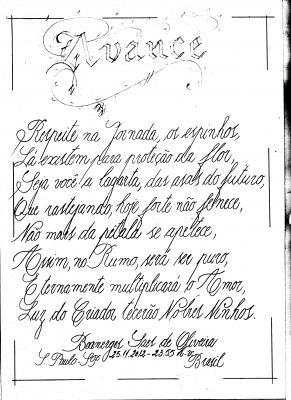 Avance
Respeite na Jornada, os espinhos,
Lá existem para proteção da flor,
Seja você a lagarta, das asas do futuro,
Que rastejando, hoje forte não fenece,
Não mais da pétala se apetece,
Assim, no Rumo, será ser puro,
Eternamente multiplicará o Amor,
Luz, do Criador tecerão Nobres Ninhos.
Boanerges Saes de Oliveira
S. Paulo - 25.11.2012 - 23:55
Brasil